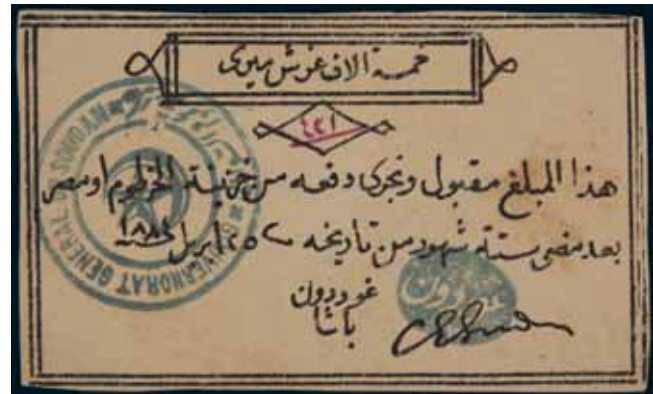 خمسة الاف غرش ميرى
٤٢١
هذا المبلغ مقبول ونجرى دفعه من خزينة الخرطوم او مصر
بعد مضى ستة شهور من تاريخه ٢٥ ابريل سنة ١٨٨٤
غوردون
باشا
GOUVERNORAT GENERAL DU SOUDAN